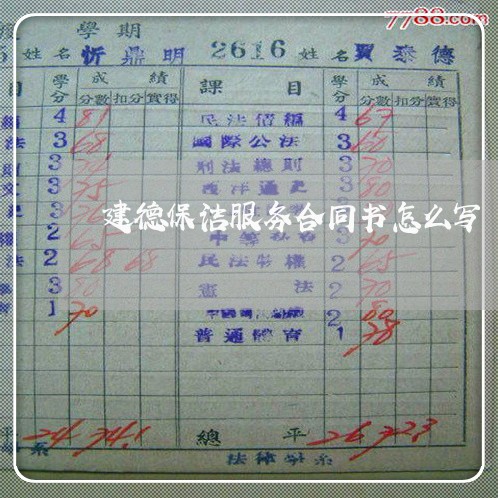 7788.com
學期
姓名 忻鼎明 2616 姓名 賈泰德
目 學分 成績 課目 學分 成績
分數 扣分 實得 分數 扣分 實得
4 81 民法債編 4 67
法 3 68 國際公法 3 60
3 刑法總則 3 70
3 75 西洋通史 3 80
建德保洁服务合同书怎么写
3 3
2 65 3 70
法 2 68 68 民法物權 2 65
3 80 憲法 2 70
1 70 2 80
普通體育 1 78
平 24 74.1 總平 26 72.3
系 法律學系